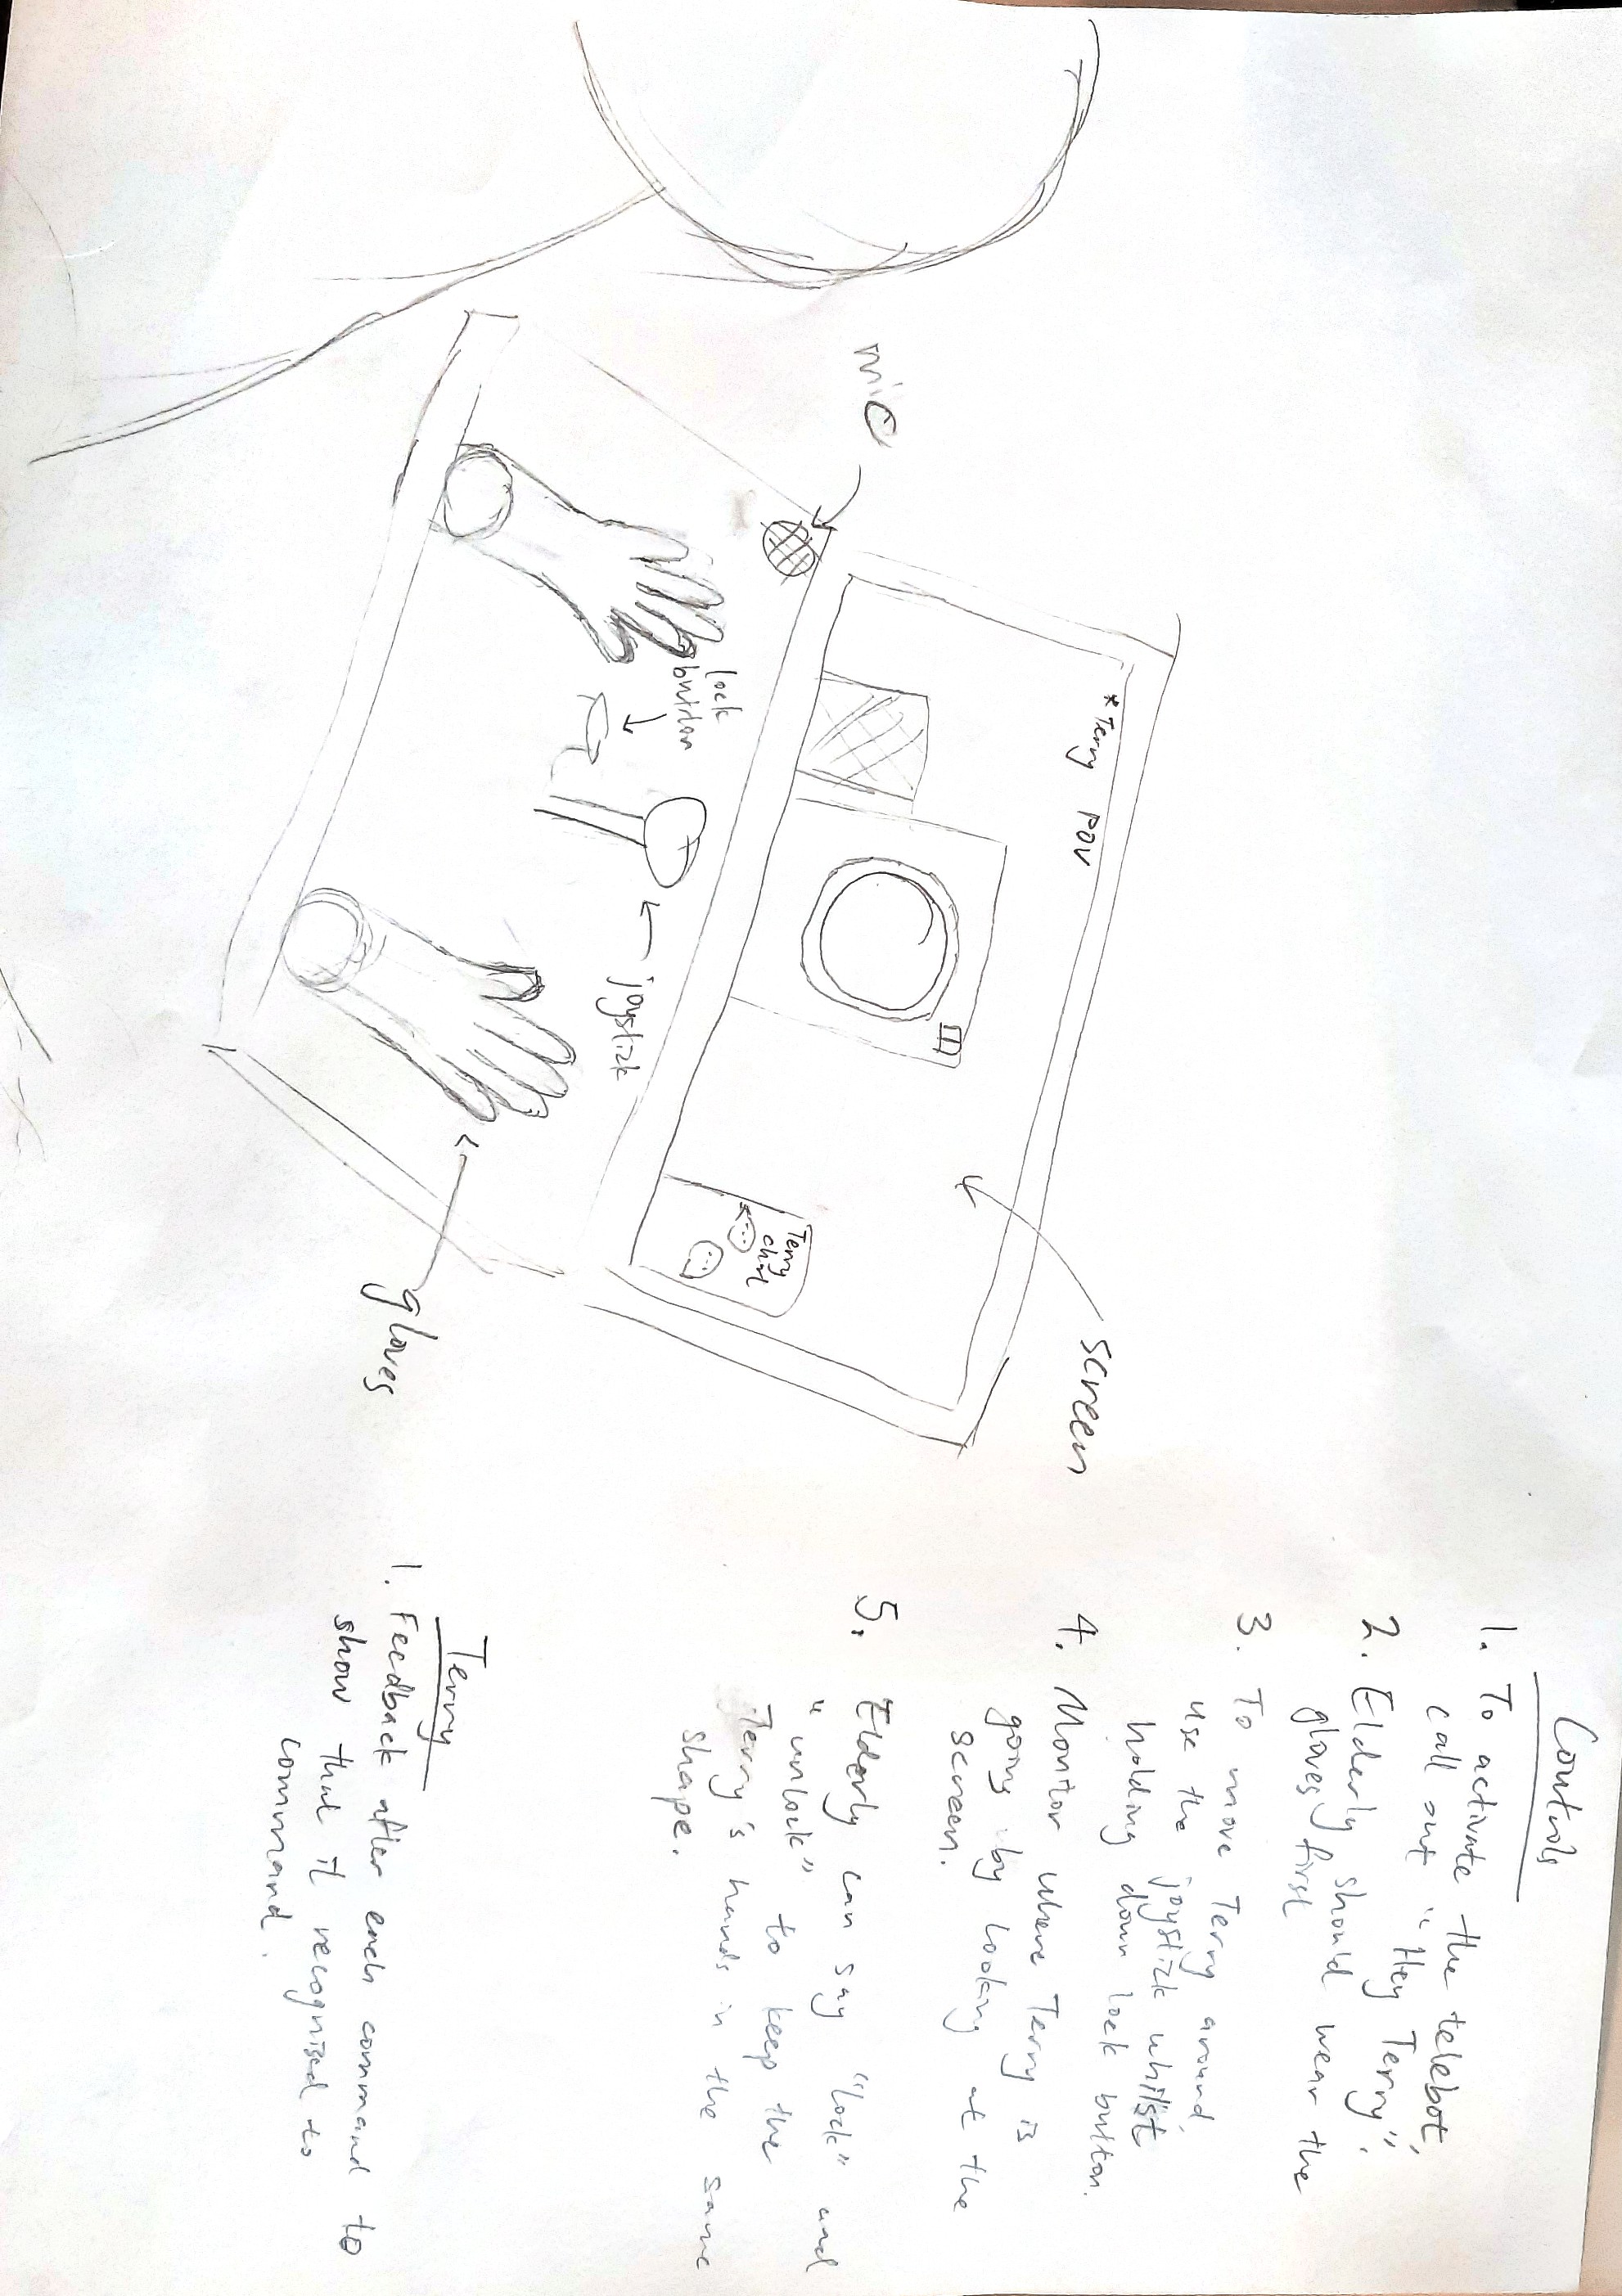 mic
* Terry POV
screen
lock
button
joystick
Terry
chat
gloves
Controls
1. To activate the telebot,
call out "Hey Terry".
2. Elderly should wear the
gloves first
3. To move Terry around,
use the joystick whilst
holding down lock button.
4. Monitor where Terry is
going by looking at the
screen.
5. Elderly can say "lock" and
"unlock" to keep the
Terry's hands in the same
shape.
Terry
1. Feedback after each command to
show that it recognised to
command.